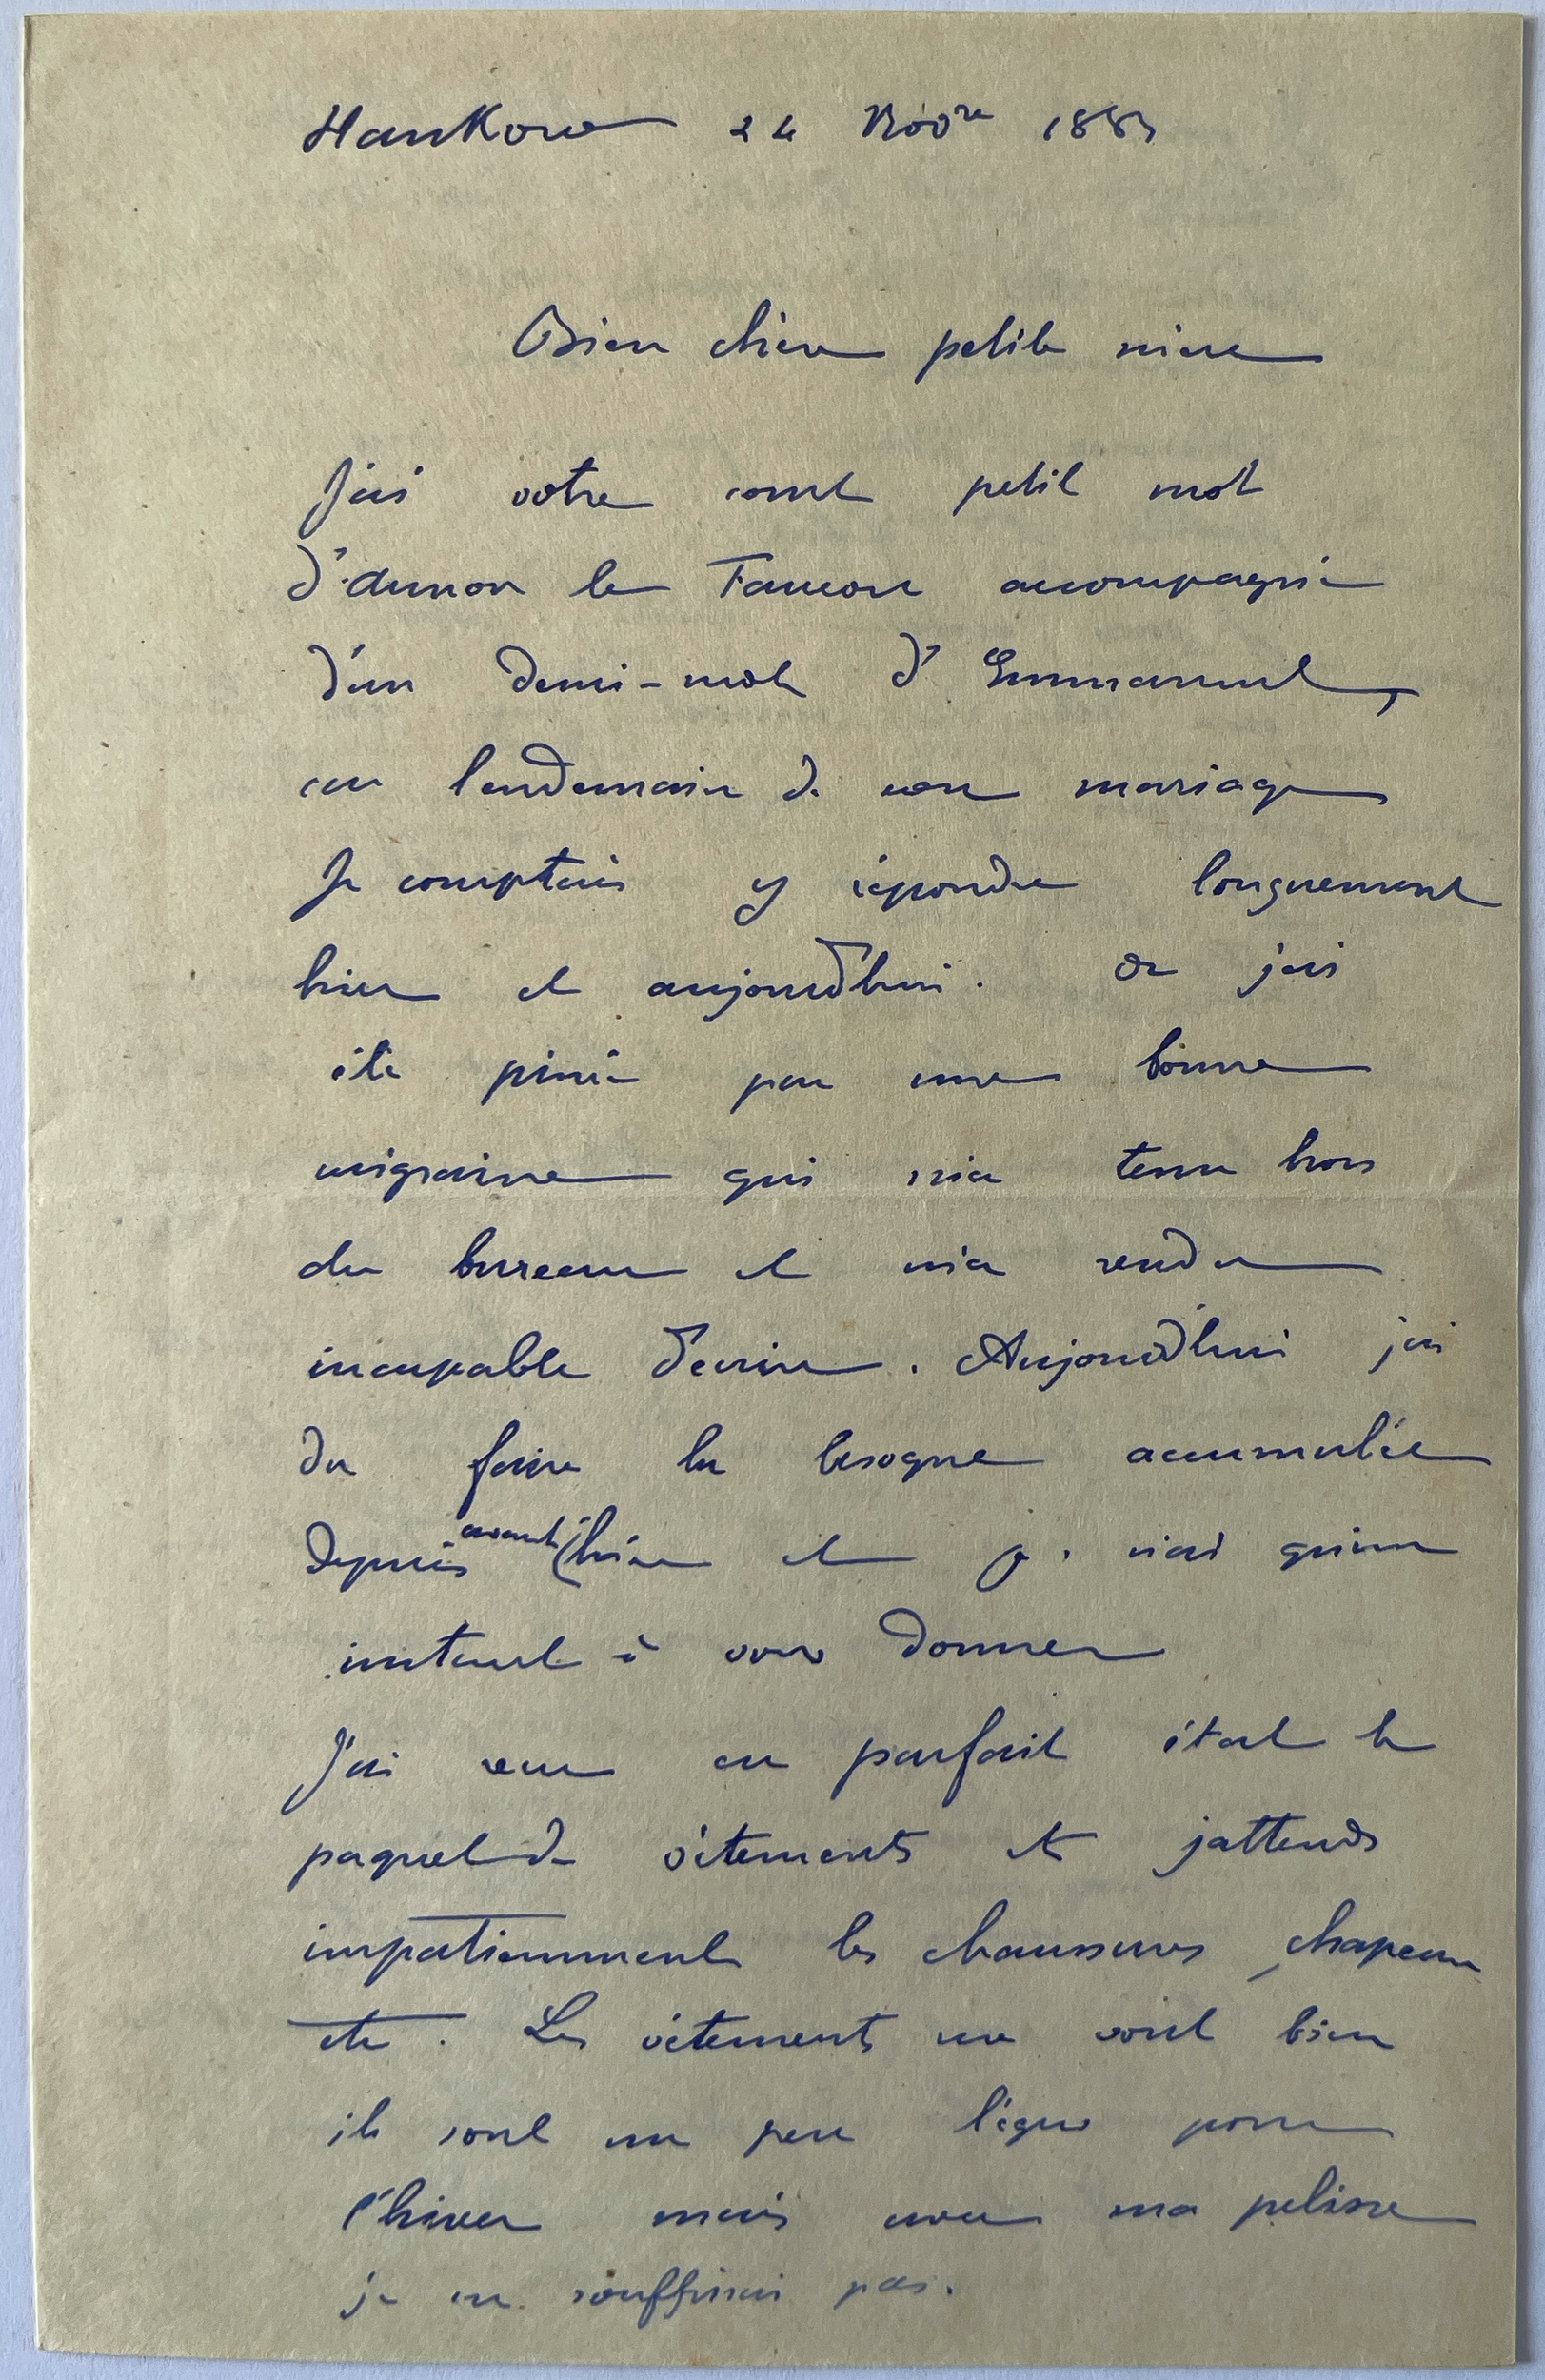 Hankow 24 Nov^bre
Bien chère petite mère
J'ai votre court petit mot
d' le Faucon accompagné
d'un demi-mot d'Emmanuel,
au lendemain de son mariage
Je comptais y répondre longuement
hier et aujourd'hui. Or j'ai
été pincé par une bonne
migraine qui m'a tenu hors
du bureau et m'a rendu
incapable d'écrire. Aujourd'hui j'ai
du faire la besogne accumulée
depuis avant hier et je n'ai qu'un
instant à vous donner
J'ai reçu en parfait état le
paquet de vêtements et j'attends
impatiemment les chaussures, chapeau
etc. Les vêtements me vont bien
ils sont un peu légers pour
l'hiver mais avec ma pelisse
je n'en souffrirai pas.